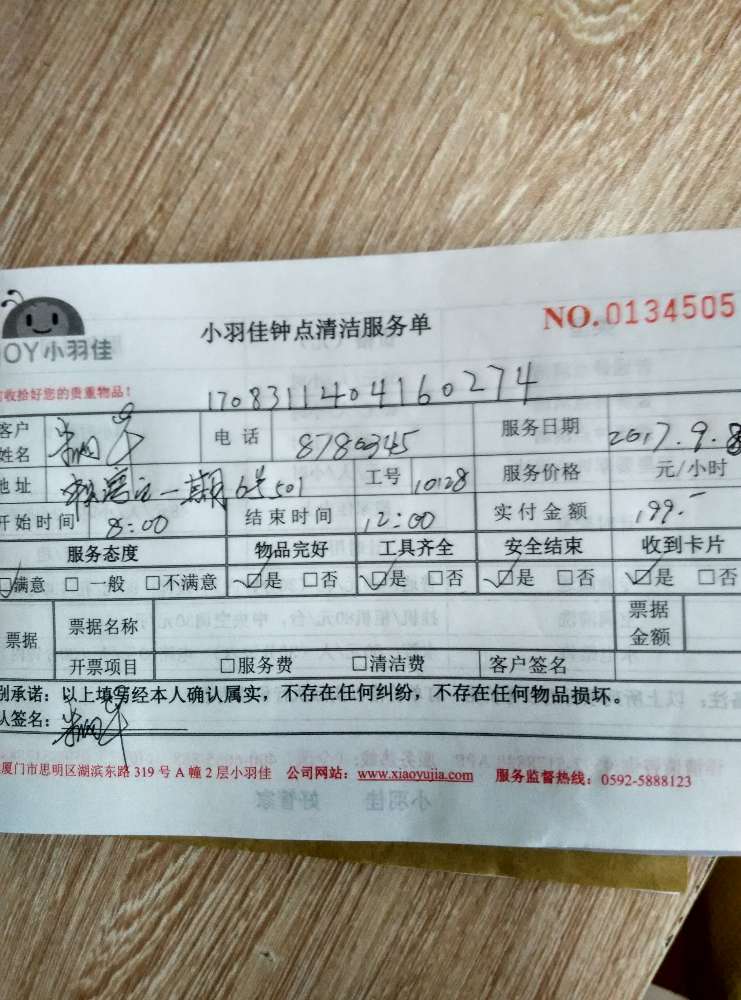 小羽佳钟点清洁服务单 NO.0134505
JOY小羽佳
收拾好您的贵重物品!
1708311404160274
客户姓名 电话 8780345 服务日期 2017.9.8
地址 一期6号501 工号 10128 服务价格 元/小时
开始时间 8:00 结束时间 12:00 实付金额 199.-
服务态度 物品完好 工具齐全 安全结束 收到卡片
☑满意 □一般 □不满意 ☑是 □否 ☑是 □否 ☑是 □否 ☑是 □否
票据 票据名称 票据金额
开票项目 □服务费 □清洁费 客户签名
别承诺：以上填写经本人确认属实，不存在任何纠纷，不存在任何物品损坏。
认签名：
厦门市思明区湖滨东路 319 号 A 幢 2 层小羽佳 公司网站：www.xiaoyujia.com 服务监督热线：0592-5888123